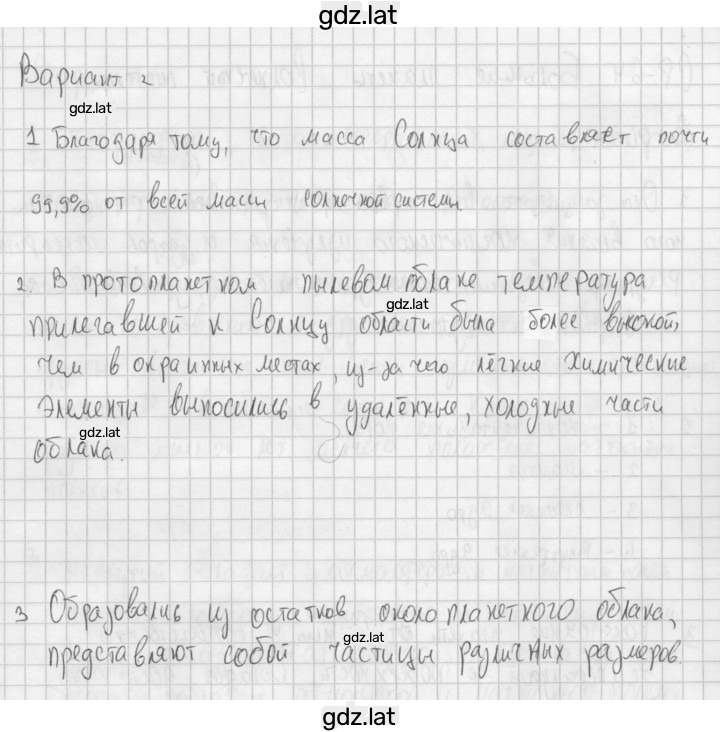 gdz.lat
Вариант 2
gdz.lat
1 Благодаря тому, что масса Солнца составляет почти
gdz.lat
99,9% от всей массы солнечной системы
2. В протопланетном пылевом облаке температура
gdz.lat
прилегавшей к Солнцу области была более высокой,
чем в окраинных местах, из-за чего лёгкие химические
элементы выносились в удалённые, холодные части
gdz.lat
облака.
3 Образовались из остатков околопланетного облака,
gdz.lat
представляют собой частицы различных размеров.
gdz.lat